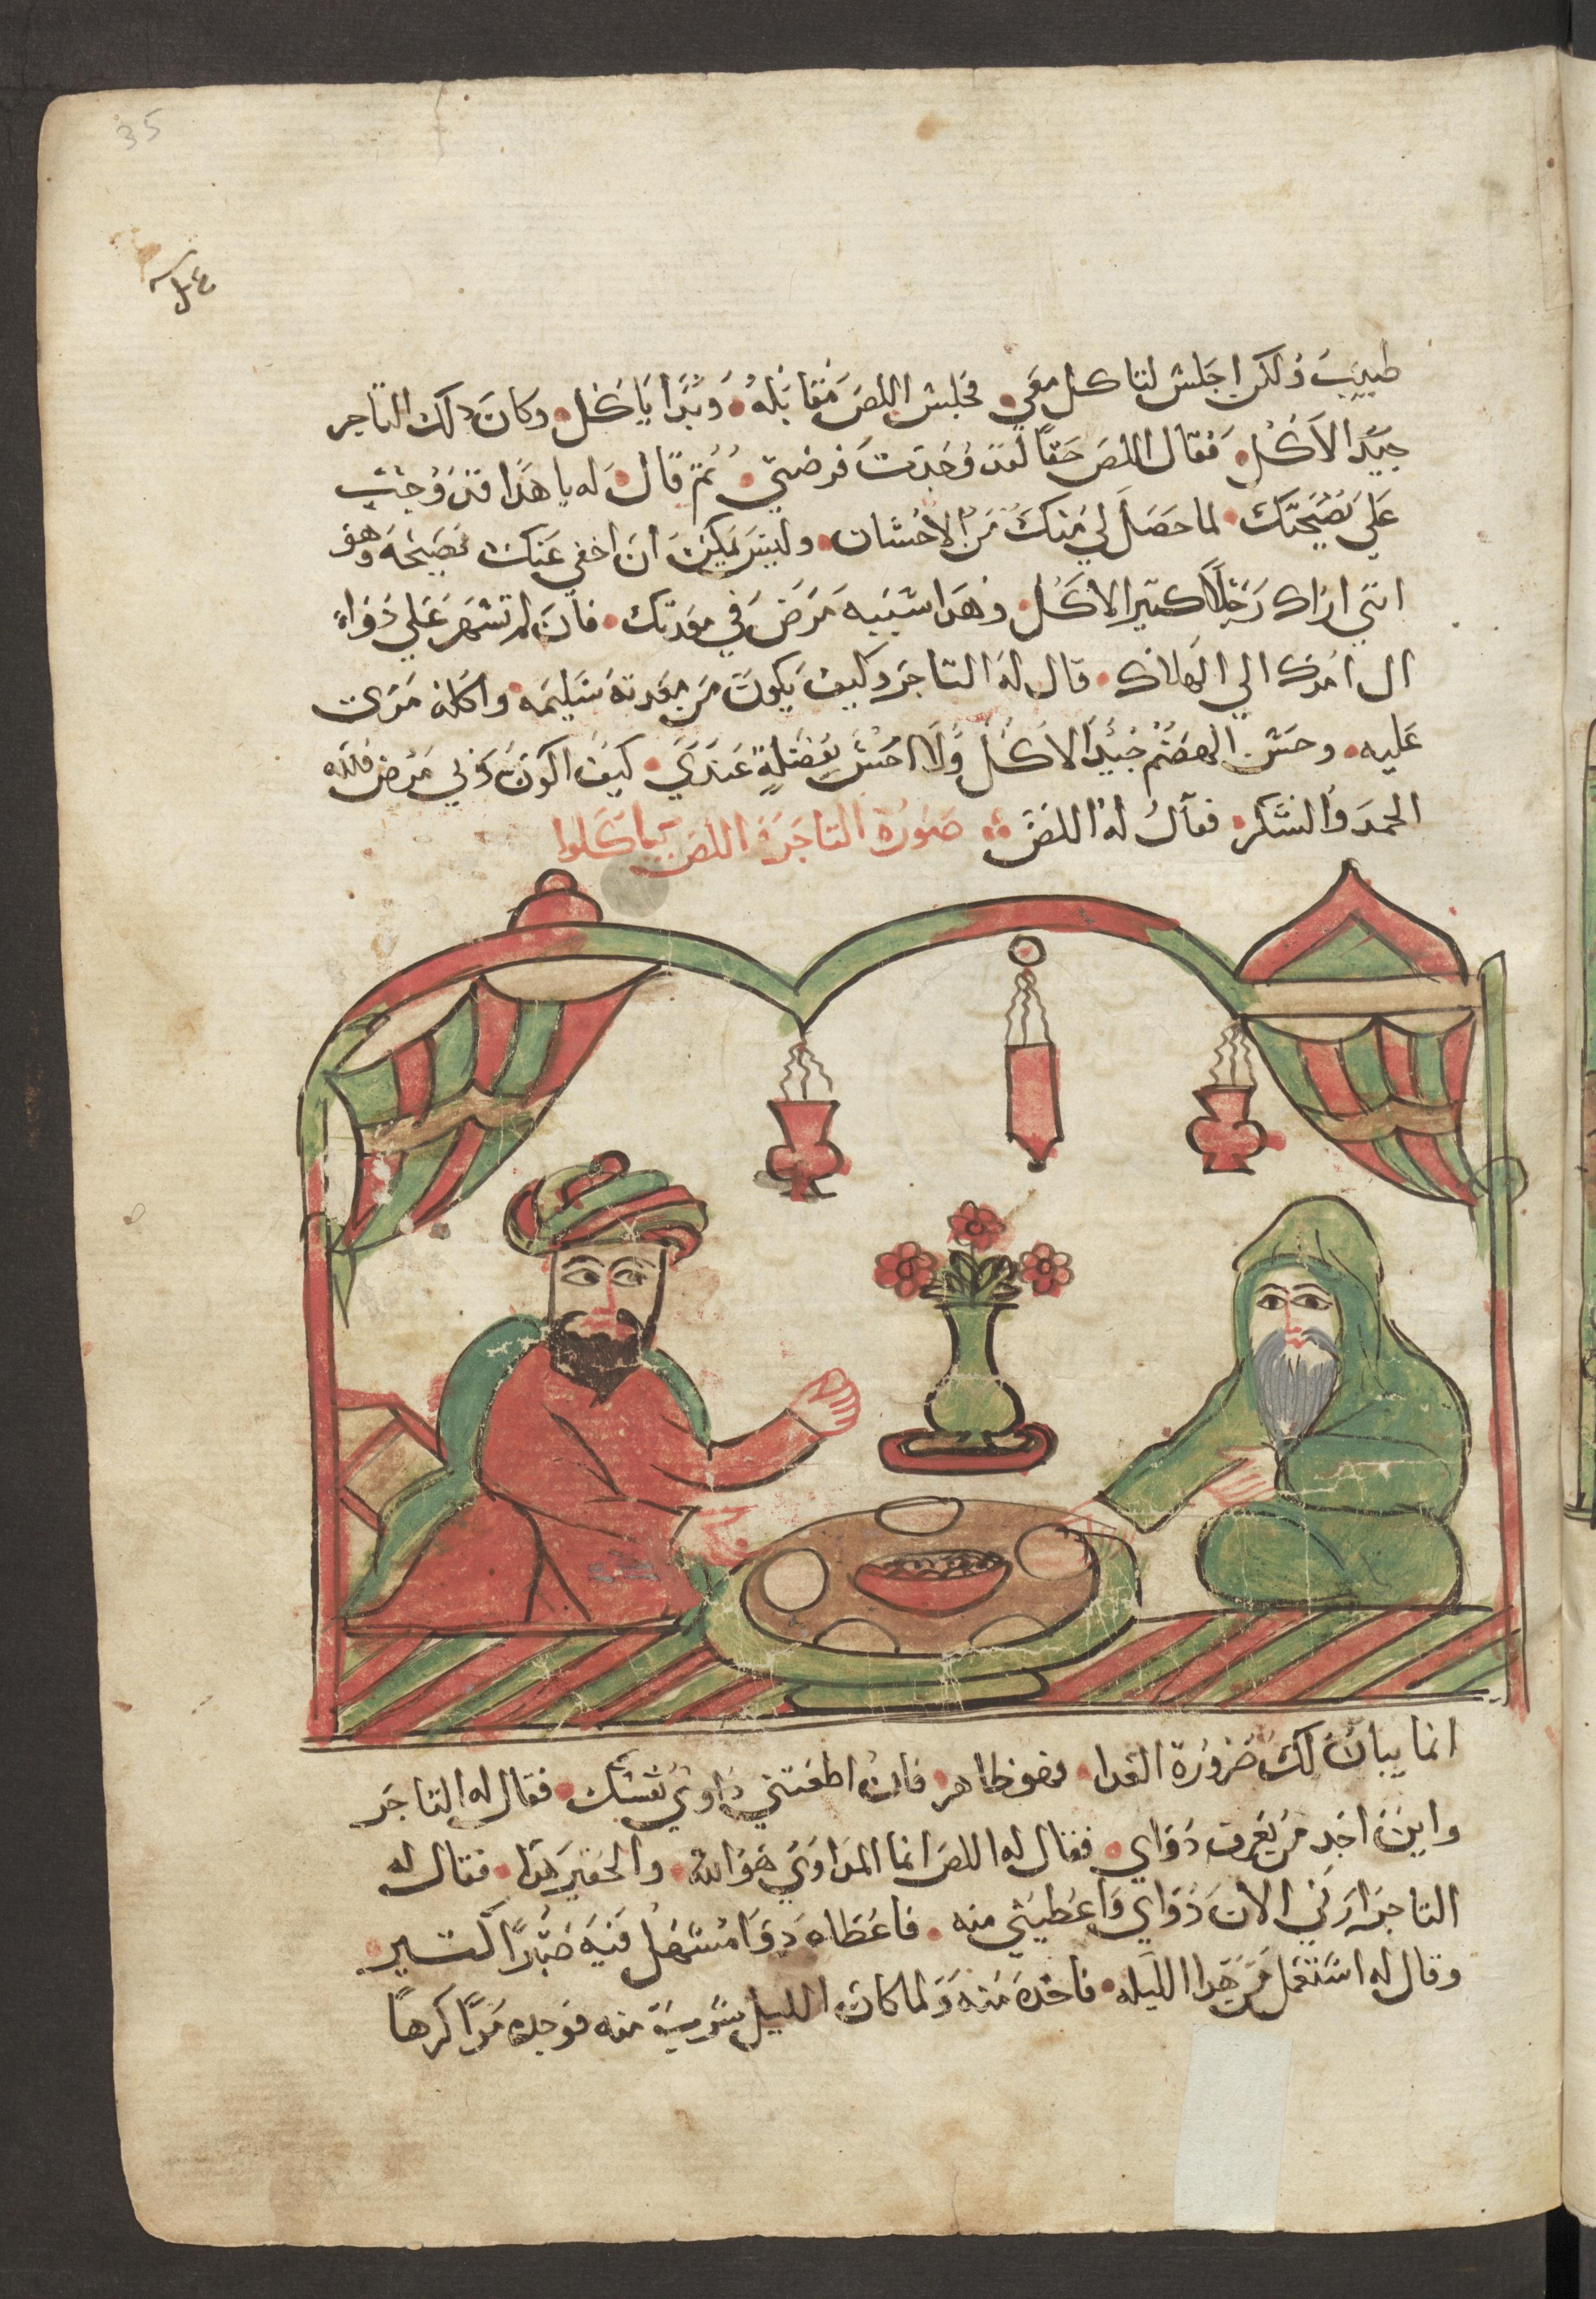 35
طبيب ولكن اجلس لتاكل معي فجلس اللص مقابله وبدا ياكل وكان دلك التاجر
جيد الاكل فقال اللص حقا لقد وجدت فرصتي ثم قال له يا هدا قد وجبت
علي نصيحتك لما حصل لي منك من الاحسان وليس يمكن ان اخفي عنك نصيحه وهو
انني اراك رجلا كتير الاكل وهدا سببه مرض في معدتك فان لم تسهر علي دواء
ال امرك الي الهلاك قال له التاجر وكيف يكون من معدته سليمه واكله مري
عليه وحسن الهضم جيد الاكل ولا احس بفضلة عندي كيف اكون في مرض فلله
الحمد والشكر فقال له اللص صورة التاجر و اللص بياكلوا
انما يبان لك ضرورة الغدا فهو ظاهر فان اطعتني داوي نفسك فقال له التاجر
واين اجد من يعرف دواي فقال له اللص انما المداوي هو الله والحقير هدا فقال له
التاجر ارني الان دواي واعطيني منه فاعطاه دوا مسهل فيه صبرا كتير
وقال له استعمل من هدا الليله فاخده منه ولما كان الليل شرب منه فوجده مرا كرها